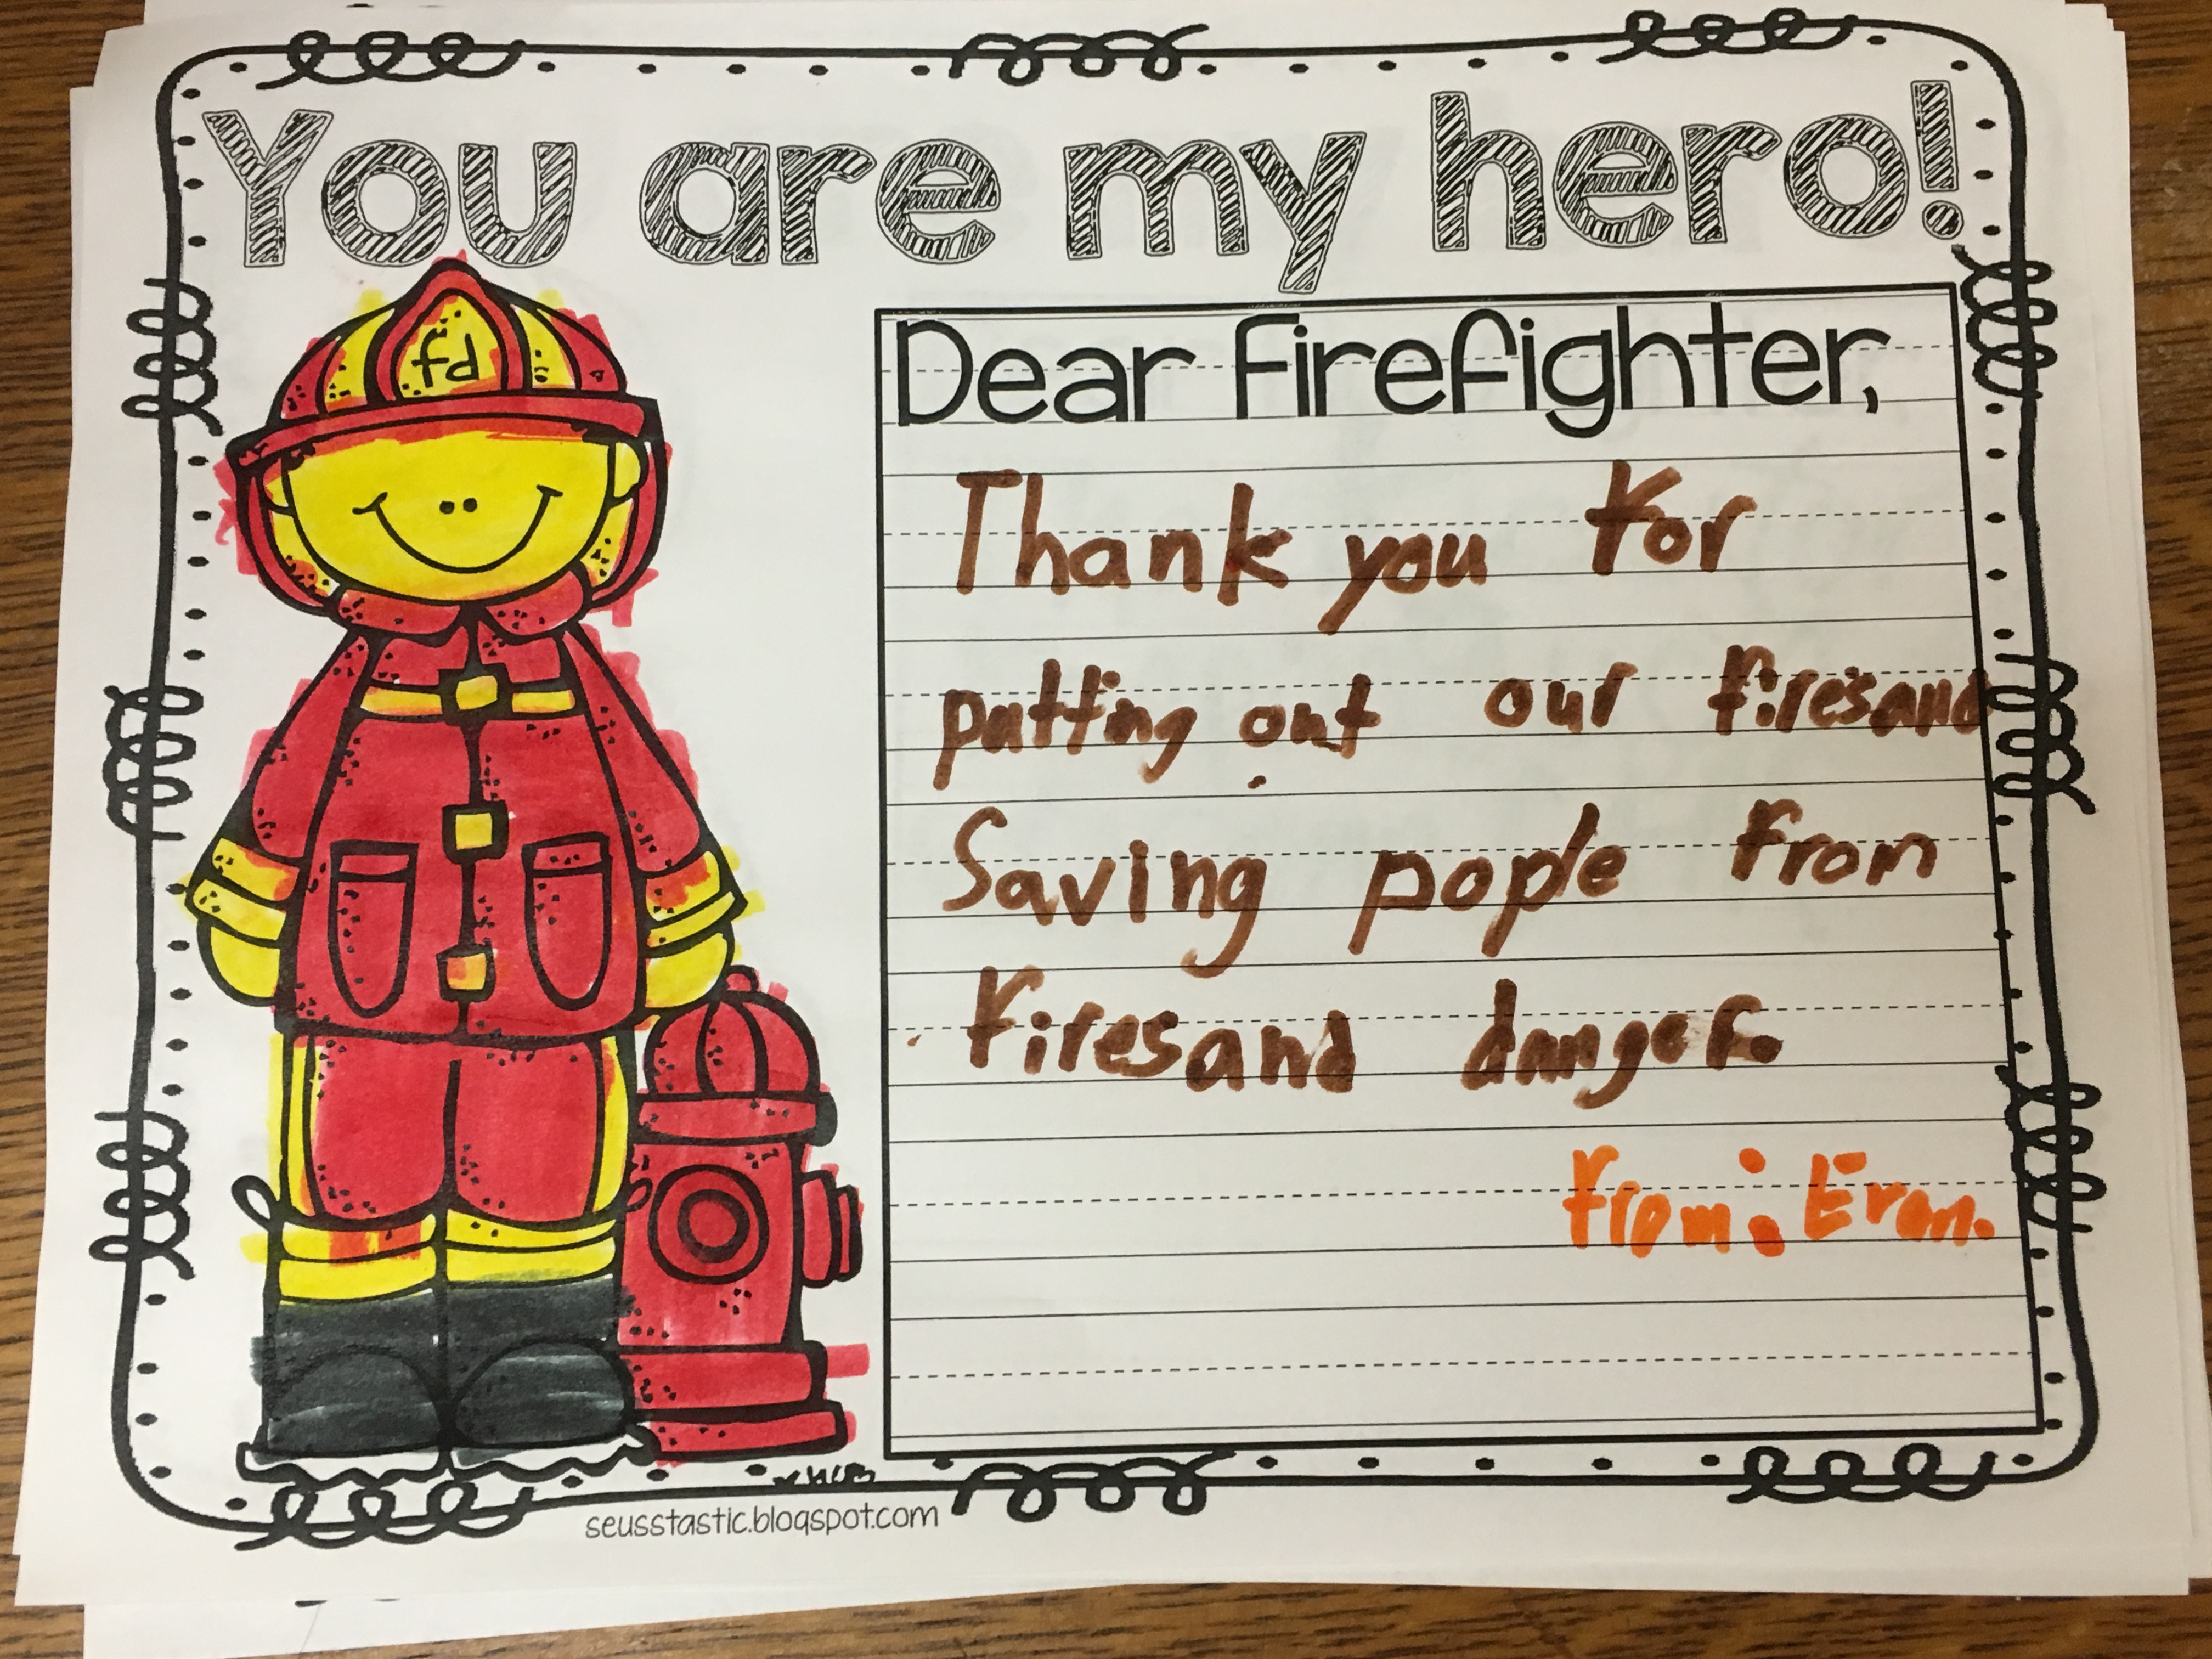 You are my hero!
fd
Dear Firefighter,
Thank you for
putting out our firesand
Saving pople from
firesand danger.
from: Eran.
seusstastic.blogspot.com